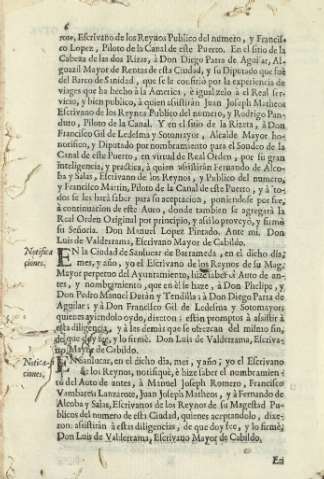 6
ros, Escrivano de los Reynos Publico del numero, y Francis-
co Lopez, Piloto de la Canal de este Puerto. En el sitio de la
Cabeza de las dos Rizas, à Don Diego Parra de Aguilar, Al-
guazil Mayor de Rentas de esta Ciudad, y su Diputado que fuè
del Barco de Sanidad, que se le cosnsidera por la experiencia de
viages que ha hecho à la America, è igual zelo à el Real ser-
vicio, y bien publico, à quien assistiràn Juan Joseph Matheos
Escrivano de los Reynos Publico del numero, y Rodrigo Pan-
duro, Piloto de la Canal. Y en el sitio de la Rizeta, à Don
Francisco Gil de Ledesma y Sotomayor, Alcalde Mayor ho-
norifico, y Diputado por nombramiento para el Sondeo de la
Canal de este Puerto, en virtud de Real Orden, por su gran
inteligencia, y practica, à quien assistiràn Fernando de Alco-
ba y Salas, Escrivano de los Reynos, y Publico del numero,
y Francisco Martin, Piloto de la Canal de este Puerto, y à to-
dos se les harà saber para su aceptacion, poniendose por fee,
à continuacion de este Auto, donde tambien se agregarà la
Real Orden Original por principio, y assi lo proveyò, y firmò
su Señoria. Don Manuel Lopez Pintado. Ante mi. Don
Luis de Valderrama, Escrivano Mayor de Cabildo.
Notifica
ciones.
EN la Ciudad de Sanlucar de Barrameda, en el dicho dia,
mes, y año, yo el Escrivano de los Reynos de su Mag.
Mayor perpetuo del Ayuntamiento, hize saber el Auto de an-
tes, y nombramiento, que en èl se haze, à Don Phelipe, y
Don Pedro Manuel Duràn y Tendilla: à Don Diego Parra de
Aguilar: y à Don Francisco Gil de Ledesma y Sotomayor:
quienes aviendolo oydo, dixeron: estàn promptos à assistir à
esta diligencia, y à las demàs que se ofrezcan del mismo fin,
de que doy fee, y lo firmè. Don Luis de Valderrama, Escriva-
no Mayor de Cabildo.
Notica-
ciones.
EN Sanlucar, en el dicho dia, mes, y año; yo el Escrivano
de los Reynos, notifiquè, è hize saber el nombramien-
to del Auto de antes, à Manuel Joseph Romero, Francisco
Vambares Lanzarote, Juan Joseph Matheos, y à Fernando de
Alcoba y Salas, Escrivanos de los Reynos de su Magestad Pu-
blicos del numero de esta Ciudad, quienes aceptandolo, dixe-
ron: assistiràn à estas diligencias, de que doy fee, y lo firmè,
Don Luis de Valderrama, Escrivano Mayor de Cabildo.
En